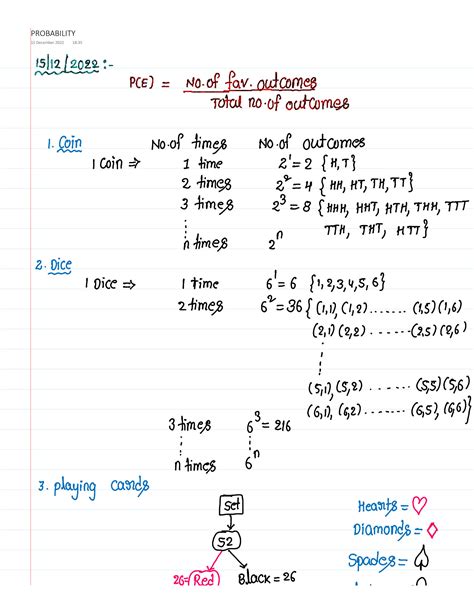 PROBABILITY
15 December 2022
15/12/2022:-
P(E) = No.of fav. outcomes
Total no.of outcomes
1. Coin No.of times No.of outcomes
1 Coin ⇒ 1 time 2¹ = 2 {H,T}
2 times 2² = 4 {HH, HT, TH, TT}
3 times 2³ = 8 {HHH, HHT, HTH, THH, TTT
TTH, THT, HTT}
n times 2ⁿ
2. Dice
1 Dice ⇒ 1 time 6¹ = 6 {1,2,3,4,5,6}
2 times 6² = 36 {(1,1),(1,2)....... (1,5)(1,6)
(2,1)(2,2)....... (2,5)(2,6)
(5,1),(5,2)....... (5,5)(5,6)
(6,1),(6,2)....... (6,5),(6,6)}
3 times 6³ = 216
n times 6ⁿ
3. playing cards
Set
Hearts = ♡
Diamonds = ♢
52
Spades = ♤
26= Red Black = 26